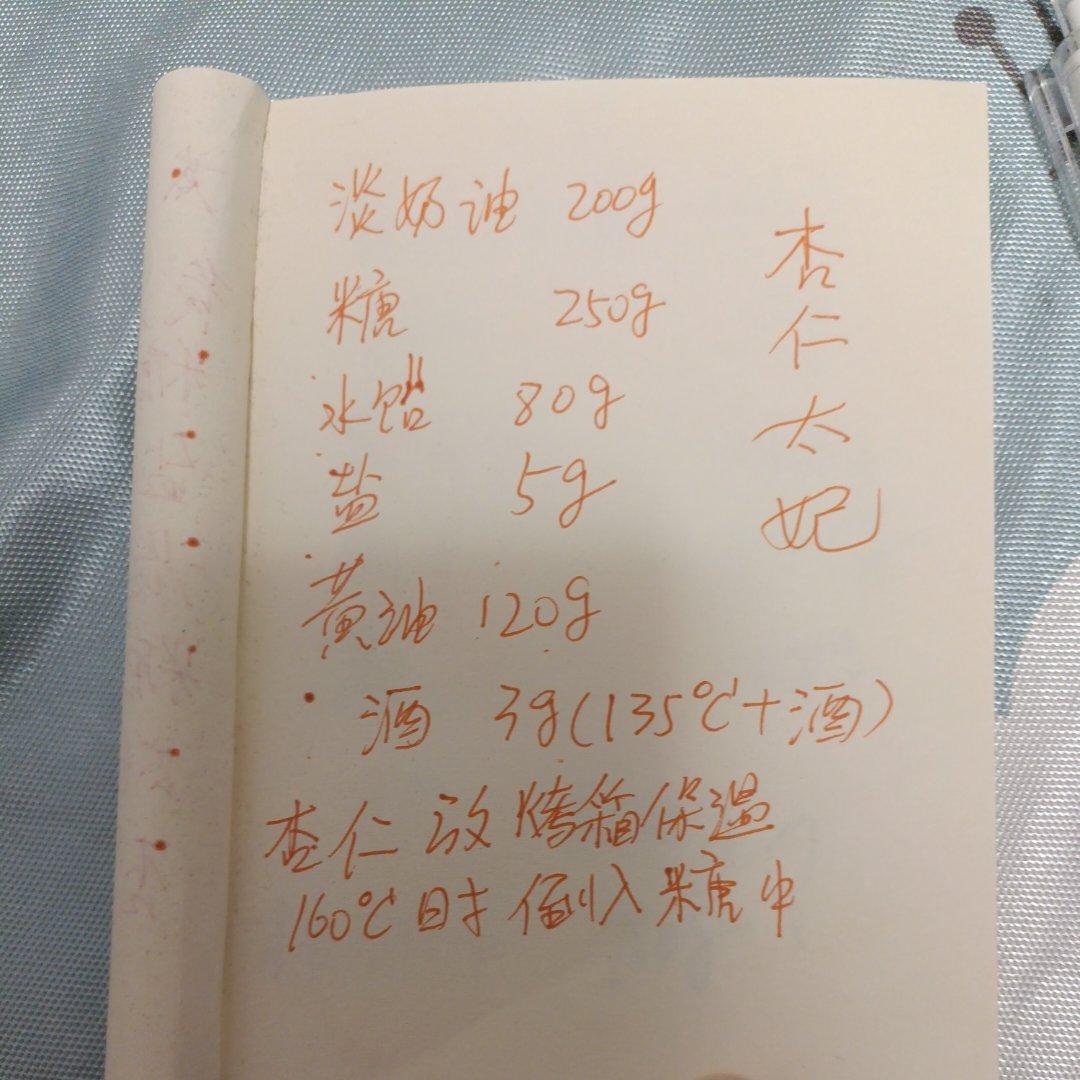 杏仁太妃
淡奶油 200g
糖 250g
水饴 80g
盐 5g
黄油 120g
酒 3g(135℃+酒)
杏仁放烤箱保温
160℃时倒入糖中